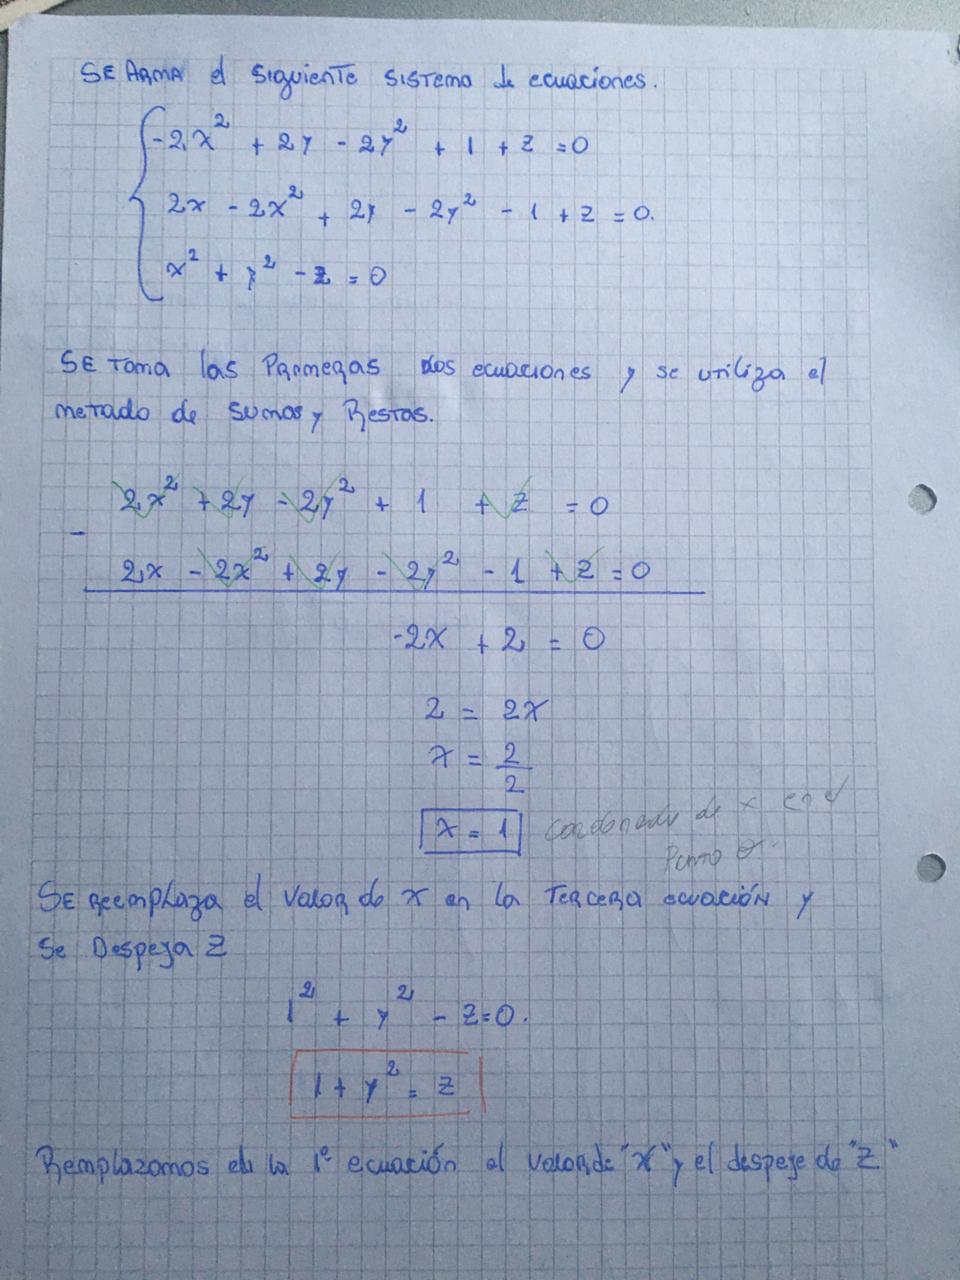 SE ARMA el siguiente sistema de ecuaciones.
-2x² + 2y - 2y² + 1 + z = 0
2x - 2x² + 2y - 2y² - 1 + z = 0.
x² + y² - z = 0
SE Toma las Primeras dos ecuaciones y se utiliza el
metodo de sumas y Restas.
2x² + 2y - 2y² + 1 + z = 0
-
2x - 2x² + 2y - 2y² - 1 + z = 0
-2x + 2 = 0
2 = 2x
x = 2/2
x = 1 coordenada de x en el
Punto
SE Reemplaza el valor de x en la Tercera ecuación y
Se Despeja Z
1² + y² - z = 0.
1 + y² = z
Remplazamos en la 1º ecuación el valor de "x" y el despeje de "z"